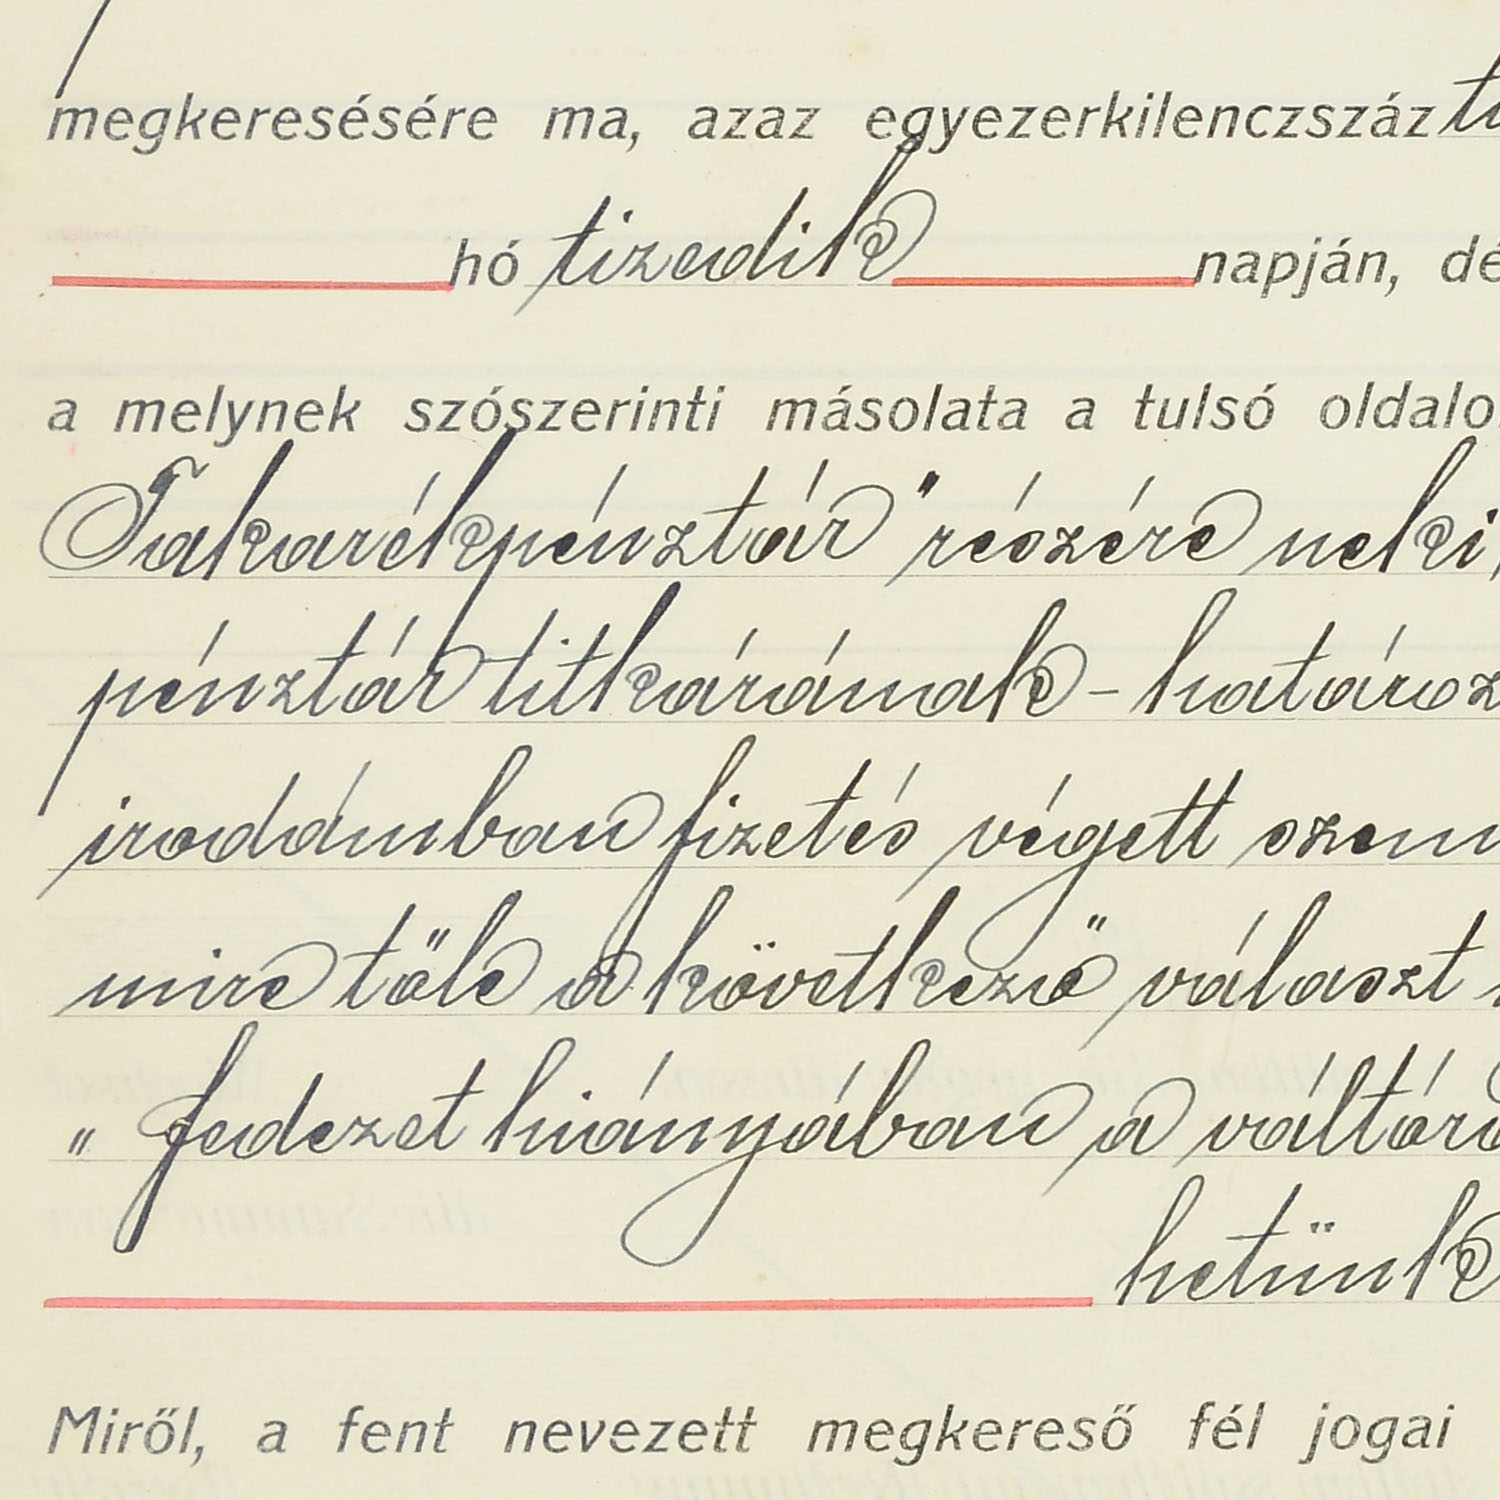 megkeresésére ma, azaz egyezerkilenczszáz
hó tizedik napján, dé
a melynek szószerinti másolata a tulsó oldalo
Takarékpénztár" részére neki,
pénztár titkárának - határoz
irodámban fizetés végett szem
mire tőle a következő választ
" Fedezet hiányában a váltóra
hetünk
Miről, a fent nevezett megkereső fél jogai